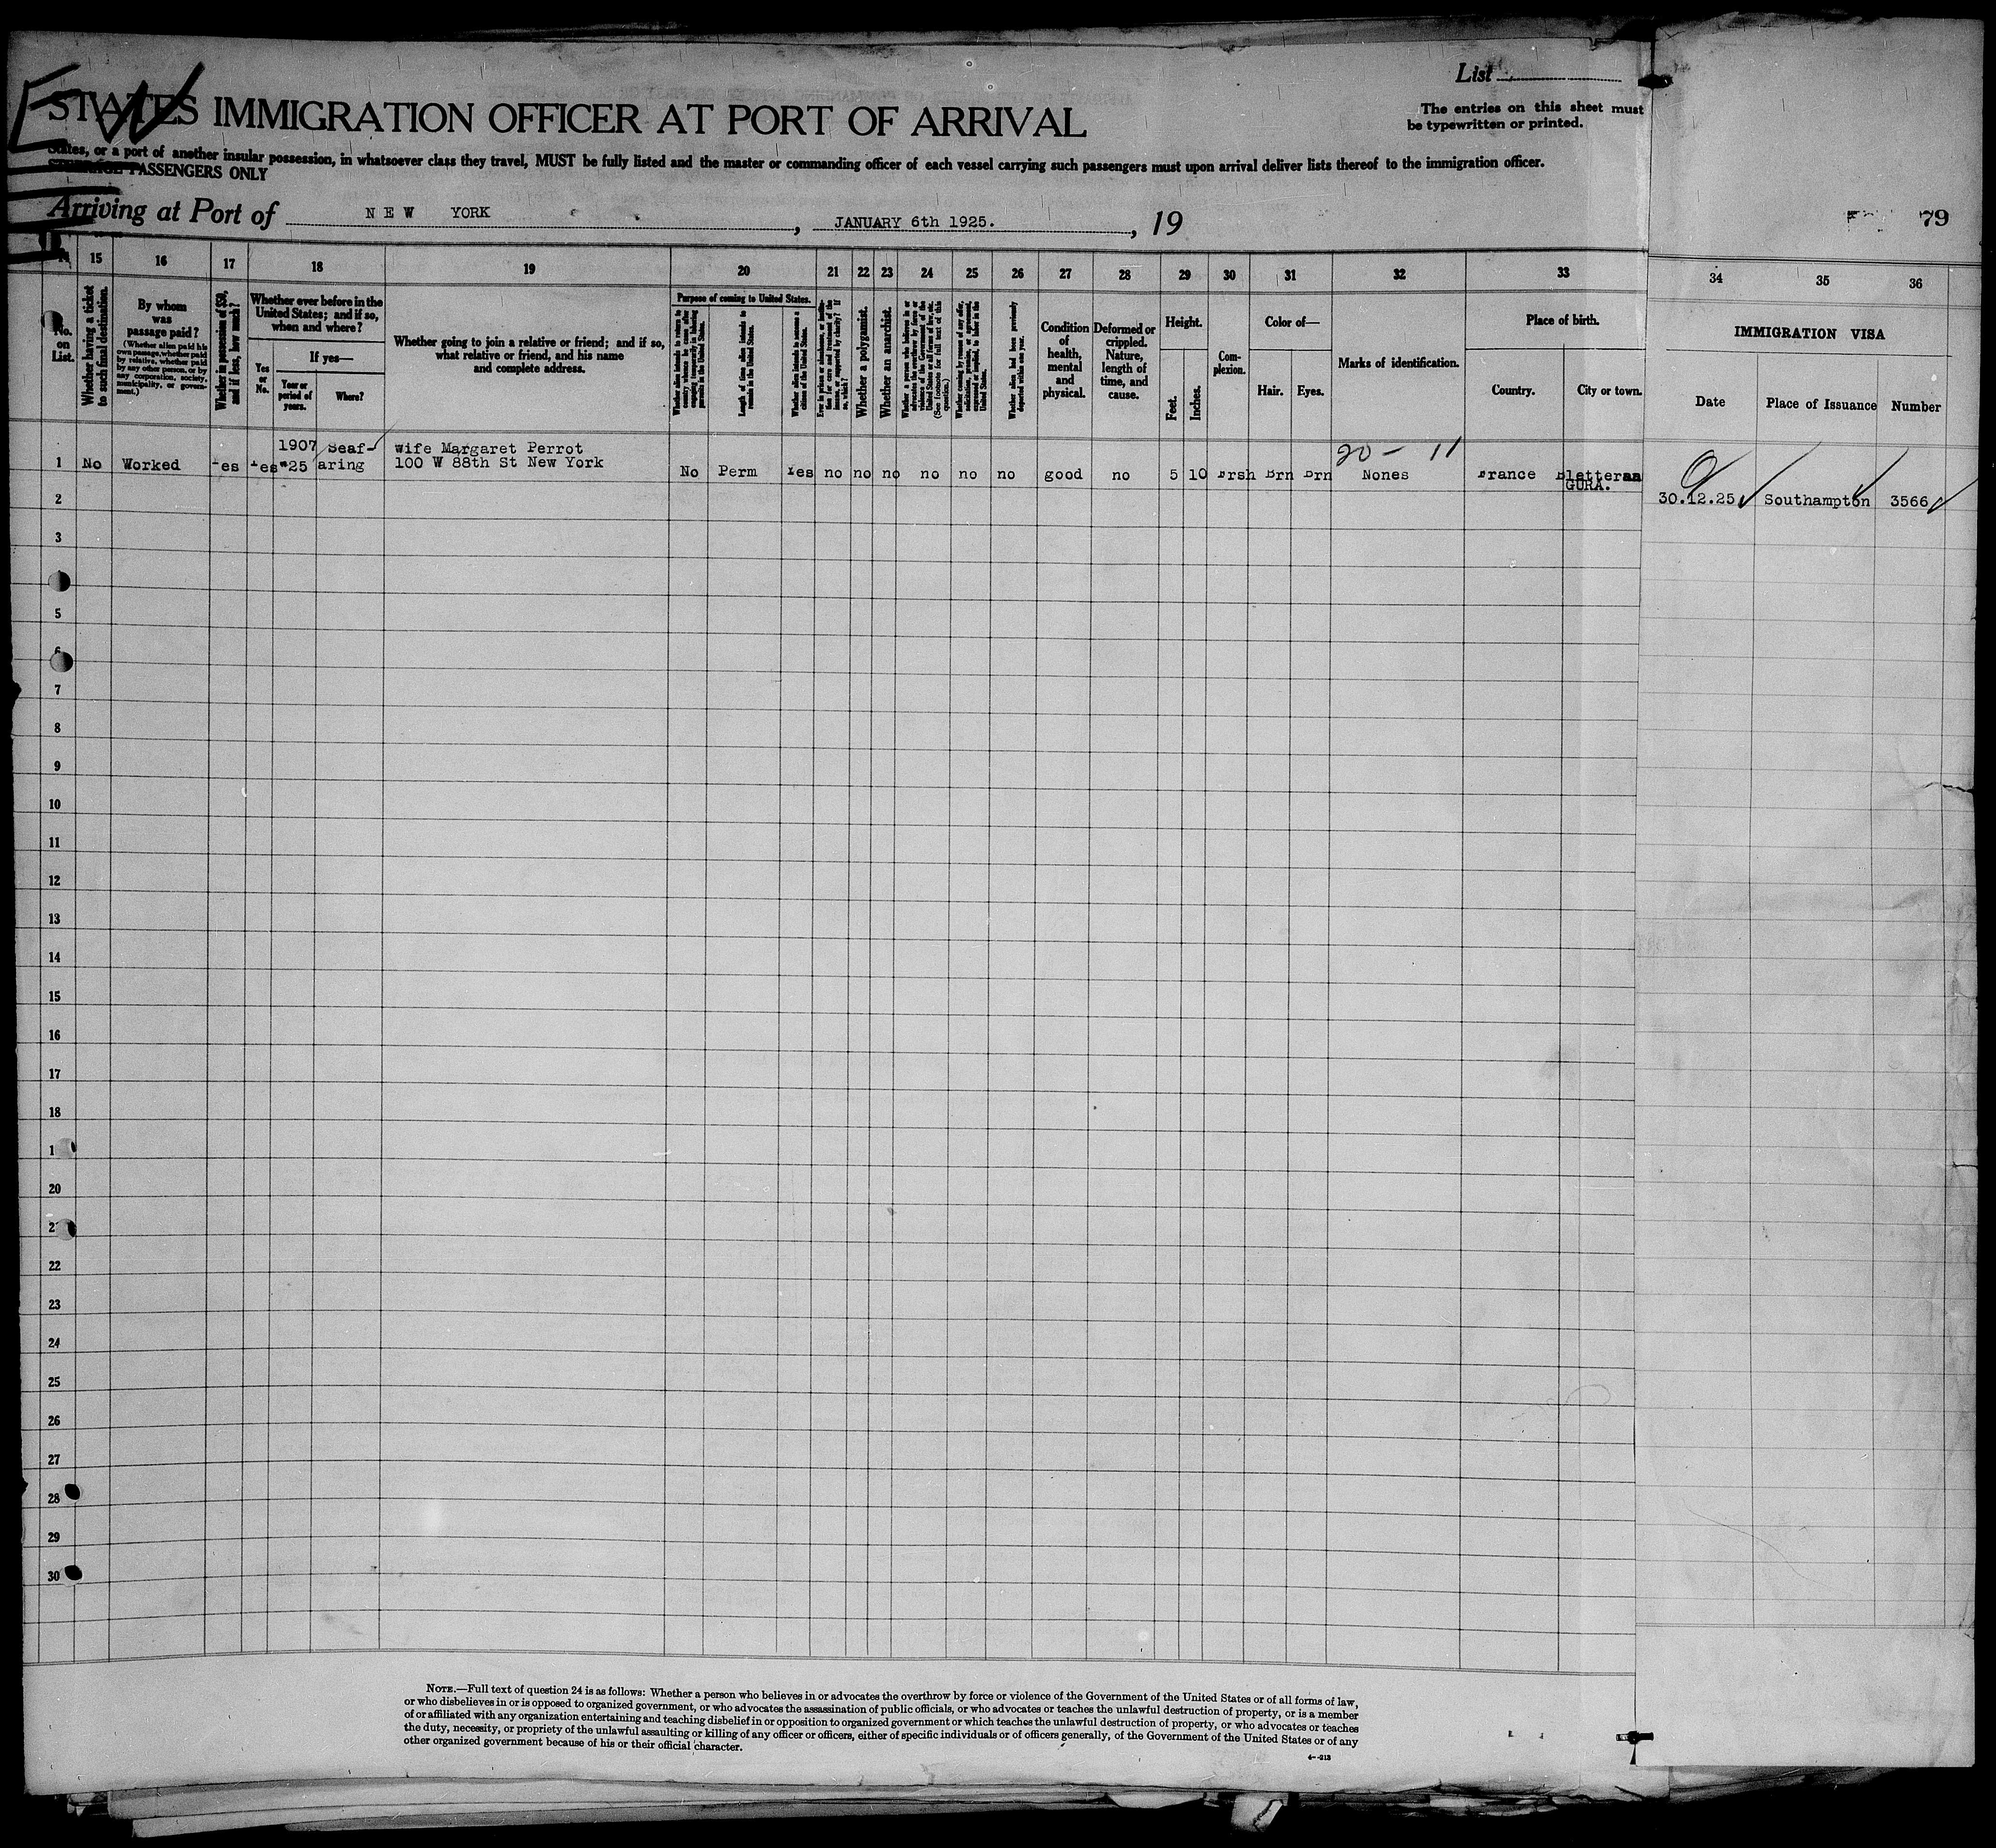 List
STATES IMMIGRATION OFFICER AT PORT OF ARRIVAL
The entries on this sheet must
be typewritten or printed.
States, or a port of another insular possession, in whatsoever class they travel, MUST be fully listed and the master or commanding officer of each vessel carrying such passengers must upon arrival deliver lists thereof to the immigration officer.
STEERAGE PASSENGERS ONLY
Arriving at Port of NEW YORK, JANUARY 6th 1925., 19
79
15 16 17 18 19 20 21 22 23 24 25 26 27 28 29 30 31 32 33 34 35 36
No.
on
List.
Whether having a ticket
to such final destination.
By whom
was
passage paid?
(Whether alien paid his
own passage, whether paid
by relative, whether paid
by any other person, or by
any corporation, society,
municipality, or govern-
ment.)
Whether in possession of $50,
and if less, how much?
Whether ever before in the
United States; and if so,
when and where?
Yes
or
No.
If yes—
Year or
period of
years.
Where?
Whether going to join a relative or friend; and if so,
what relative or friend, and his name
and complete address.
Purpose of coming to United States.
Whether alien intends to return to
country whence he came after
engaging temporarily in laboring
pursuits in the United States.
Length of time alien intends to
remain in the United States.
Whether alien intends to become a
citizen of the United States.
Ever in prison or almshouse, or institu-
tion for care and treatment of the
insane, or supported by charity? If
so, which?
Whether a polygamist.
Whether an anarchist.
Whether a person who believes in or
advocates the overthrow by force or
violence of the Government of the
United States or all forms of law, etc.
(See footnote for full text of this
question.)
Whether coming by reason of any offer,
solicitation, promise, or agreement,
expressed or implied, to labor in the
United States.
Whether alien had been previously
deported within one year.
Condition
of
health,
mental
and
physical.
Deformed or
crippled.
Nature,
length of
time, and
cause.
Height.
Feet.
Inches.
Com-
plexion.
Color of—
Hair.
Eyes.
Marks of identification.
Place of birth.
Country.
City or town.
IMMIGRATION VISA
Date
Place of Issuance
Number
1907 Seaf- wife Margaret Perrot 20 - 11
1 No Worked Yes Yes "25 aring 100 W 88th St New York No Perm Yes no no no no no no good no 5 10 Frsh Brn Brn Nones France Bletteran
GURA.
30.12.25 Southampton 3566
2
3
5
6
7
8
9
10
11
12
13
14
15
16
17
18
1
20
2
22
23
24
25
26
27
28
29
30
NOTE.—Full text of question 24 is as follows: Whether a person who believes in or advocates the overthrow by force or violence of the Government of the United States or of all forms of law,
or who disbelieves in or is opposed to organized government, or who advocates the assassination of public officials, or who advocates or teaches the unlawful destruction of property, or is a member
of or affiliated with any organization entertaining and teaching disbelief in or opposition to organized government or which teaches the unlawful destruction of property, or who advocates or teaches
the duty, necessity, or propriety of the unlawful assaulting or killing of any officer or officers, either of specific individuals or of officers generally, of the Government of the United States or of any
other organized government because of his or their official character.